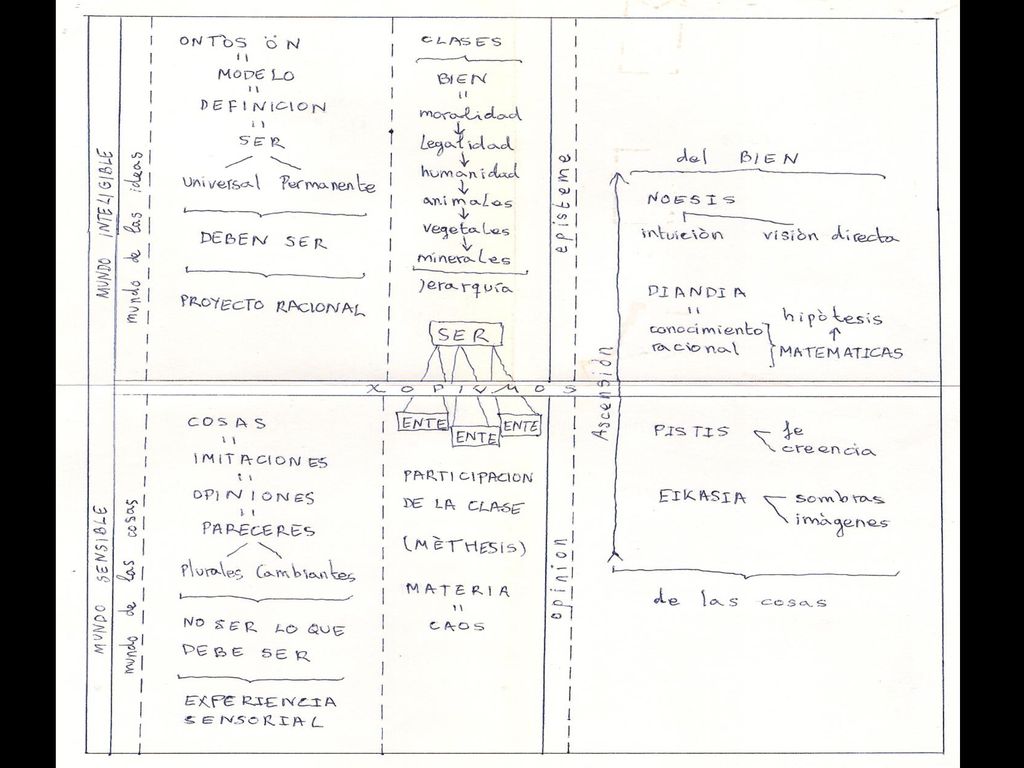 MUNDO INTELIGIBLE
mundo de las ideas
ONTOS ÖN
"
MODELO
"
DEFINICION
"
SER
Universal Permanente
DEBEN SER
PROYECTO RACIONAL
CLASES
BIEN
"
moralidad
legalidad
humanidad
animales
vegetales
minerales
Jerarquía
SER
episteme
del BIEN
NOESIS
intuiciòn visiòn directa
DIANDIA
"
conocimiento
racional
hipòtesis
MATEMATICAS
Ascensiòn
XOPIVMOS
MUNDO SENSIBLE
mundo de las cosas
COSAS
"
IMITACIONES
"
OPINIONES
"
PARECERES
Plurales Cambiantes
NO SER LO QUE
DEBE SER
EXPERIENCIA
SENSORIAL
ENTE
ENTE
ENTE
PARTICIPACION
DE LA CLASE
(MÈTHESIS)
MATERIA
"
CAOS
opinion
PISTIS
fe
creencia
EIKASIA
sombras
imàgenes
de las cosas